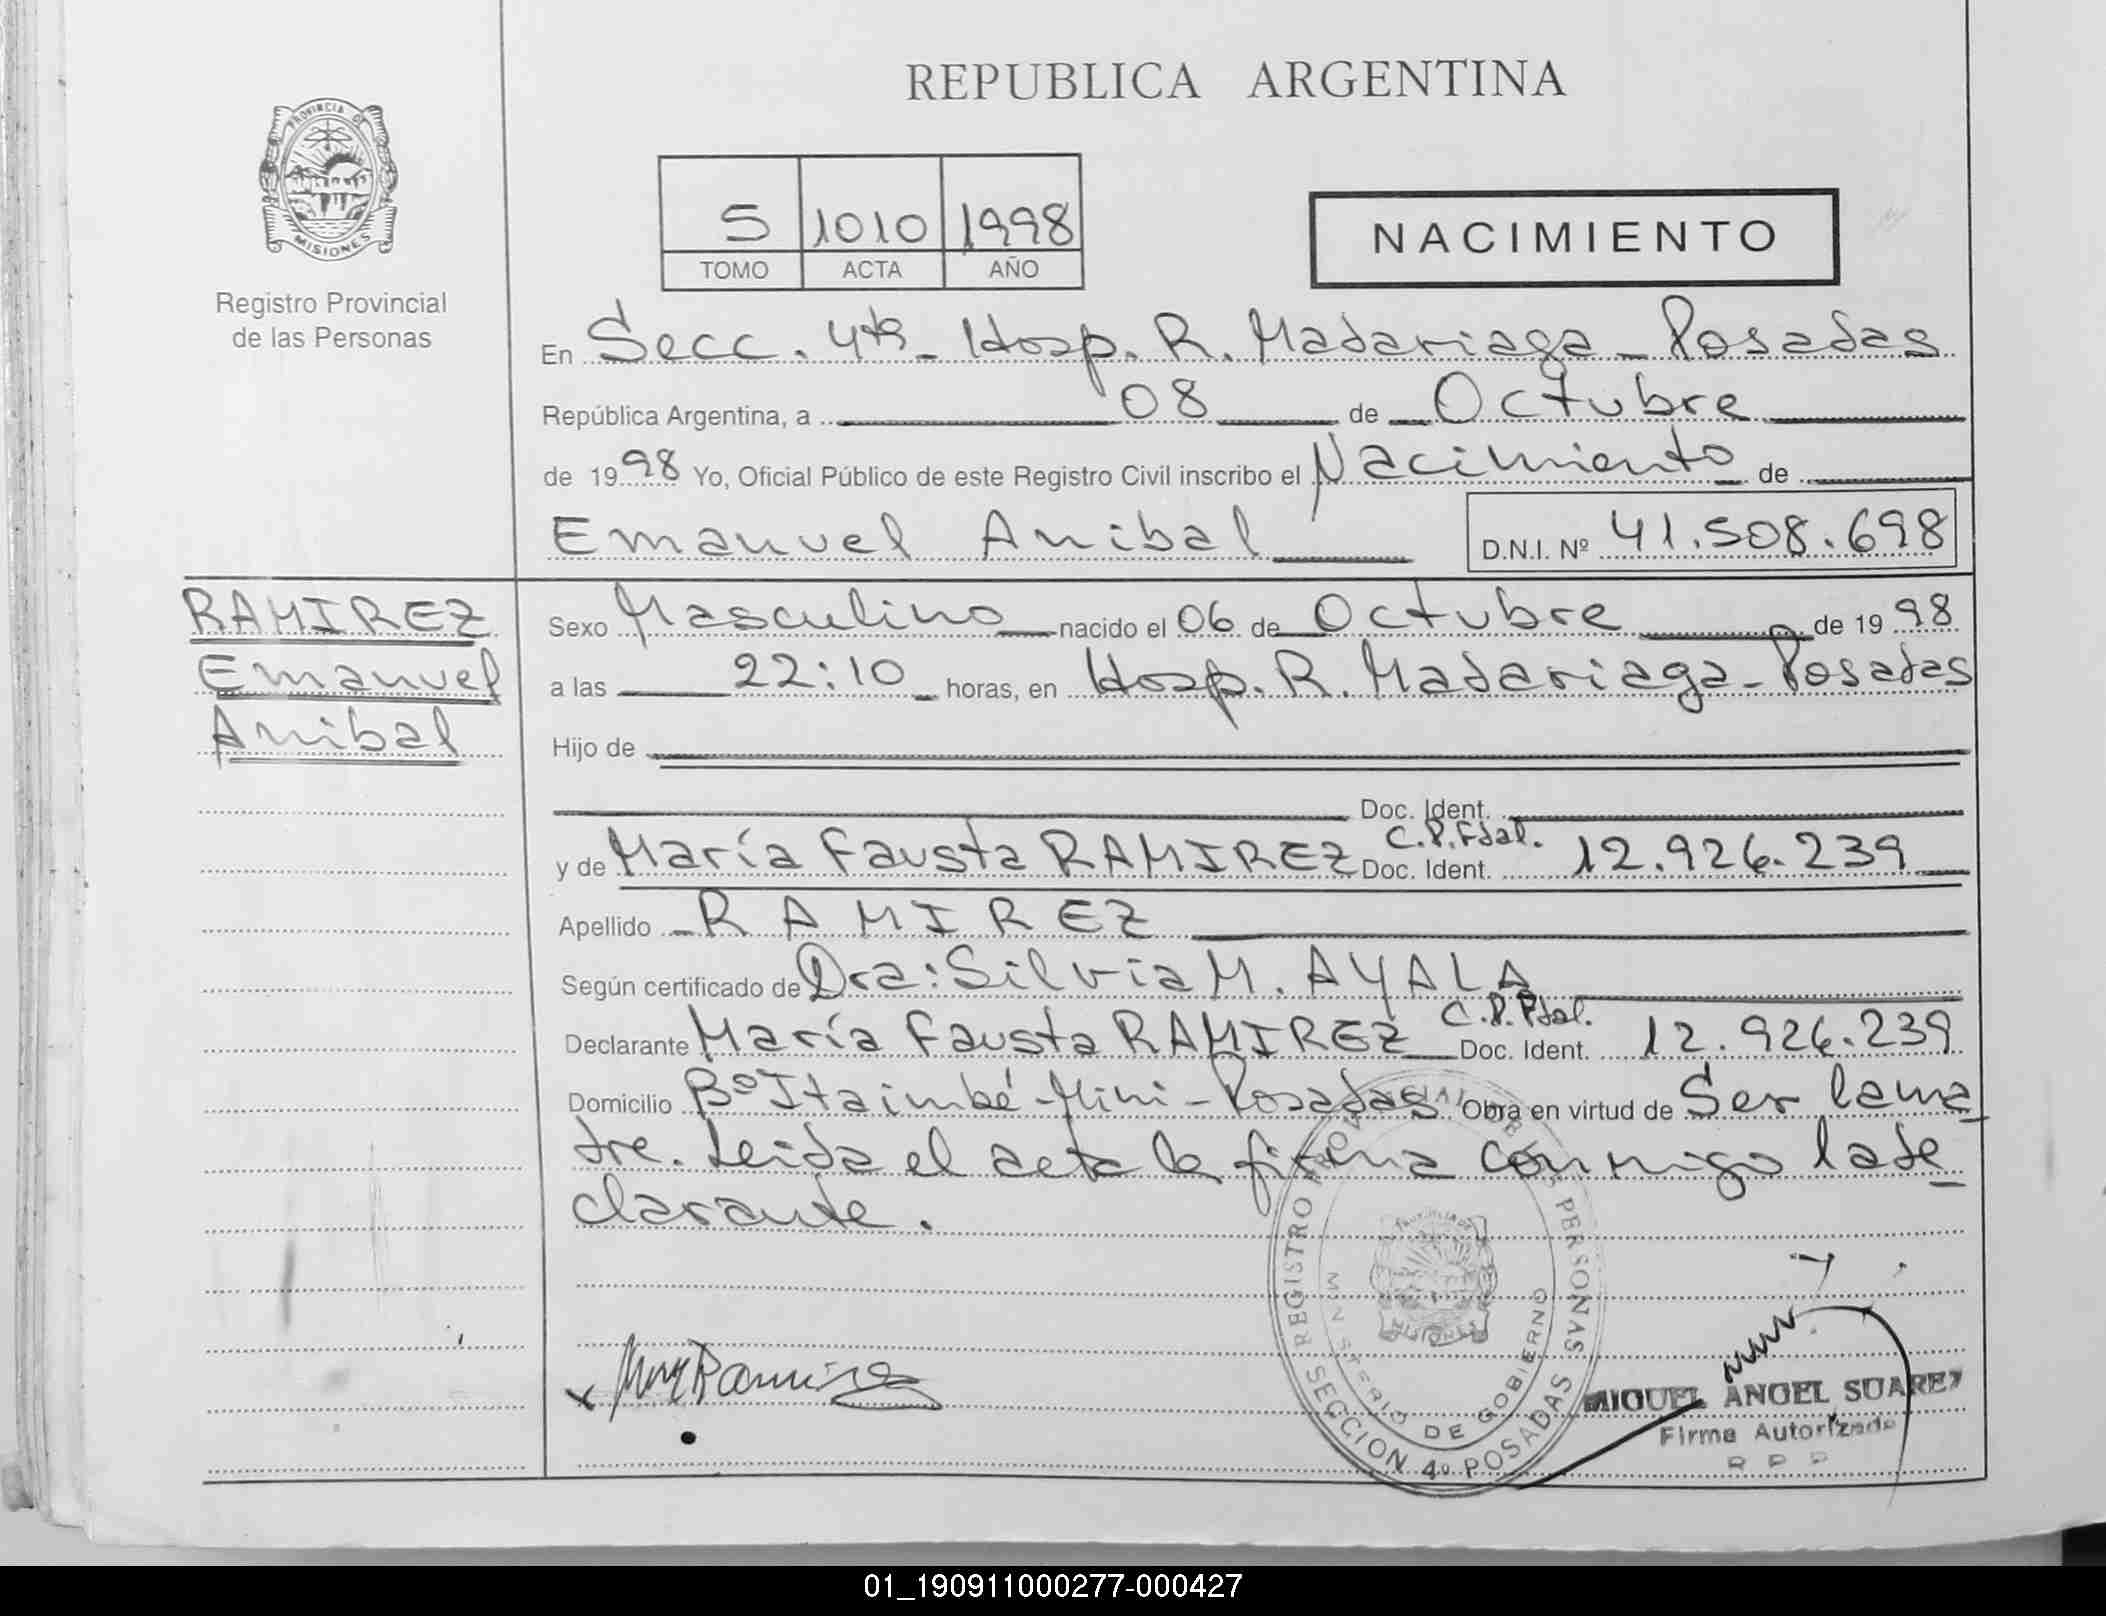 REPUBLICA ARGENTINA
PROVINCIA DE
MISIONES
Registro Provincial
de las Personas
5 1010 1998
TOMO ACTA AÑO
NACIMIENTO
En Secc. 4ta - Hosp. R. Madariaga - Posadas
República Argentina, a 08 de Octubre
de 1998 Yo, Oficial Público de este Registro Civil inscribo el Nacimiento de
Emanuel Anibal D.N.I. Nº 41.508.698
RAMIREZ
Emanuel
Anibal
Sexo Masculino nacido el 06 de Octubre de 1998
a las 22:10 horas, en Hosp. R. Madariaga - Posadas
Hijo de
Doc. Ident.
y de María Fausta RAMIREZ C.P.Fdal. Doc. Ident. 12.926.239
Apellido RAMIREZ
Según certificado de Dra: Silvia M. AYALA
Declarante María Fausta RAMIREZ C.P.Fdal. Doc. Ident. 12.926.239
Domicilio Bº Itaimbé-Mini - Posadas Obra en virtud de Ser la ma-
dre. Leida el acta la firma conmigo la de-
clarante.
REGISTRO PROVINCIAL DE LAS PERSONAS
MINISTERIO DE GOBIERNO
MISIONES
SECCION 4º POSADAS
x Ramirez
MIGUEL ANGEL SUAREZ
Firma Autorizada
R P P
01_190911000277-000427